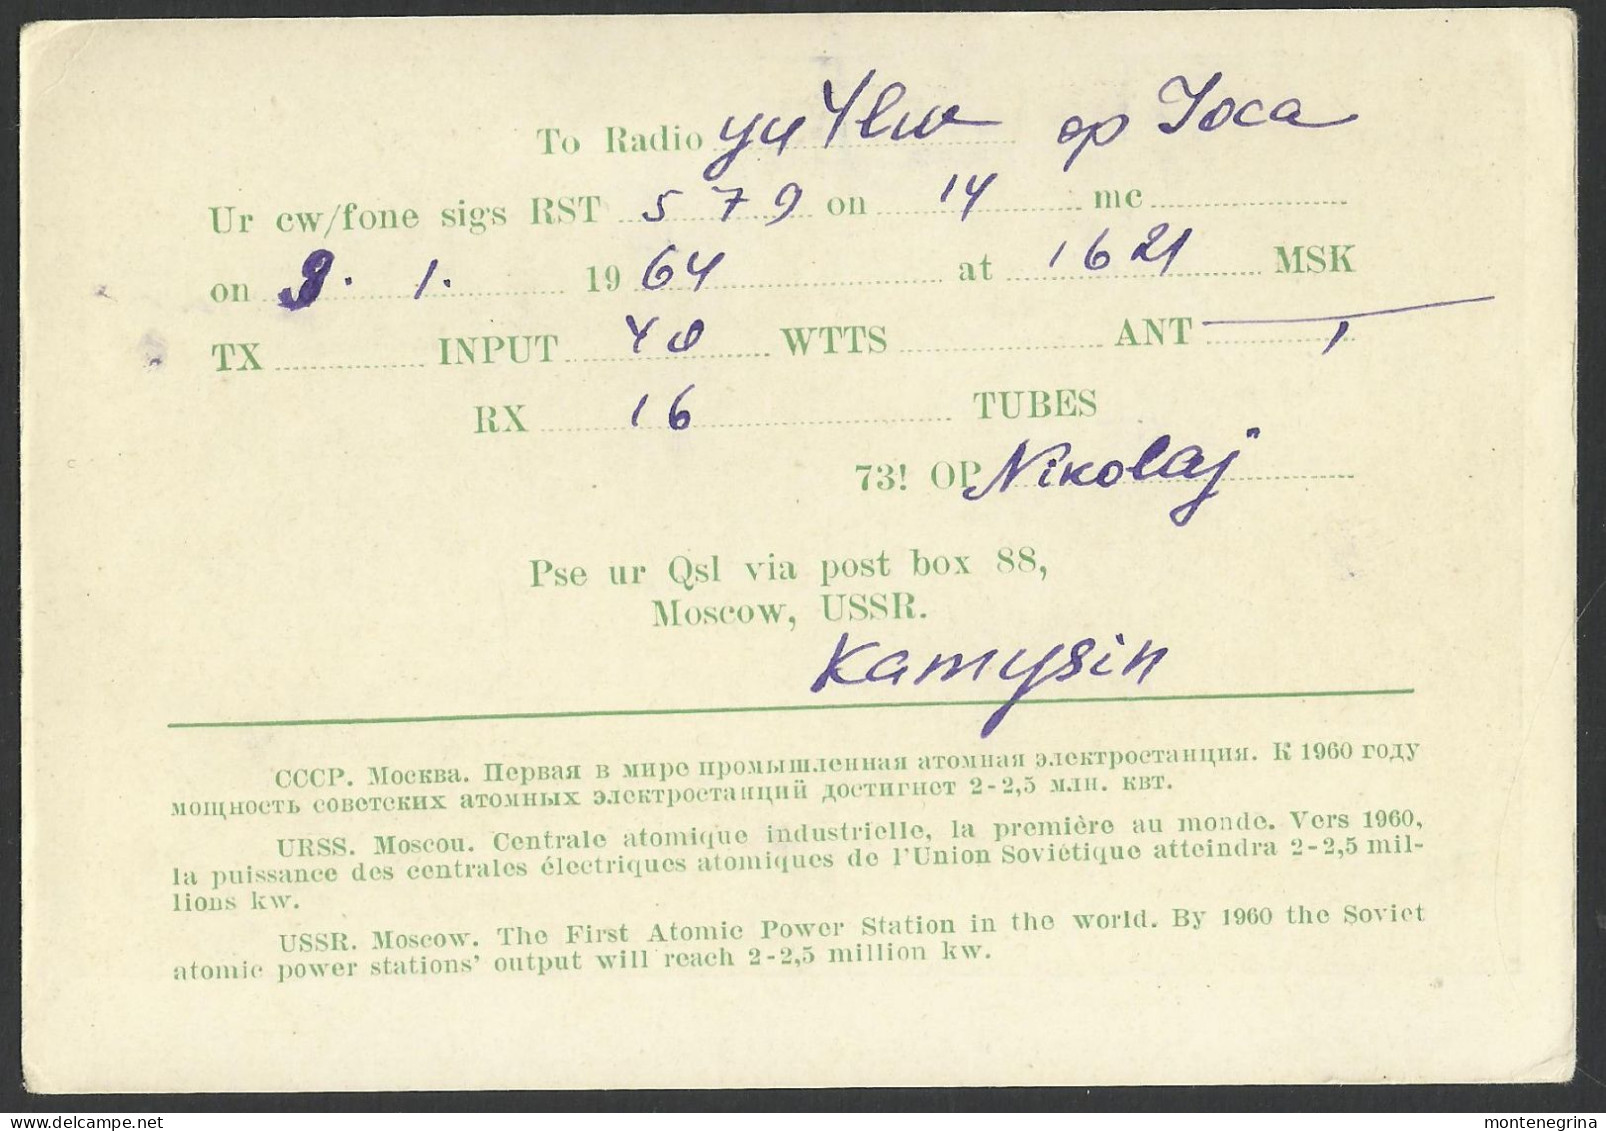 To Radio YU4LW op Joca
Ur cw/fone sigs RST 579 on 14 mc
on 9. 1. 1964 at 1621 MSK
TX INPUT 40 WTTS ANT
RX 16 TUBES
73! OP Nikolaj
Pse ur Qsl via post box 88,
Moscow, USSR.
Kamysin
СССР. Москва. Первая в мире промышленная атомная электростанция. К 1960 году
мощность советских атомных электростанций достигнет 2-2,5 млн. квт.
URSS. Moscou. Centrale atomique industrielle, la première au monde. Vers 1960,
la puissance des centrales électriques atomiques de l'Union Soviétique atteindra 2-2,5 mil-
lions kw.
USSR. Moscow. The First Atomic Power Station in the world. By 1960 the Soviet
atomic power stations' output will reach 2-2,5 million kw.
montenegrina